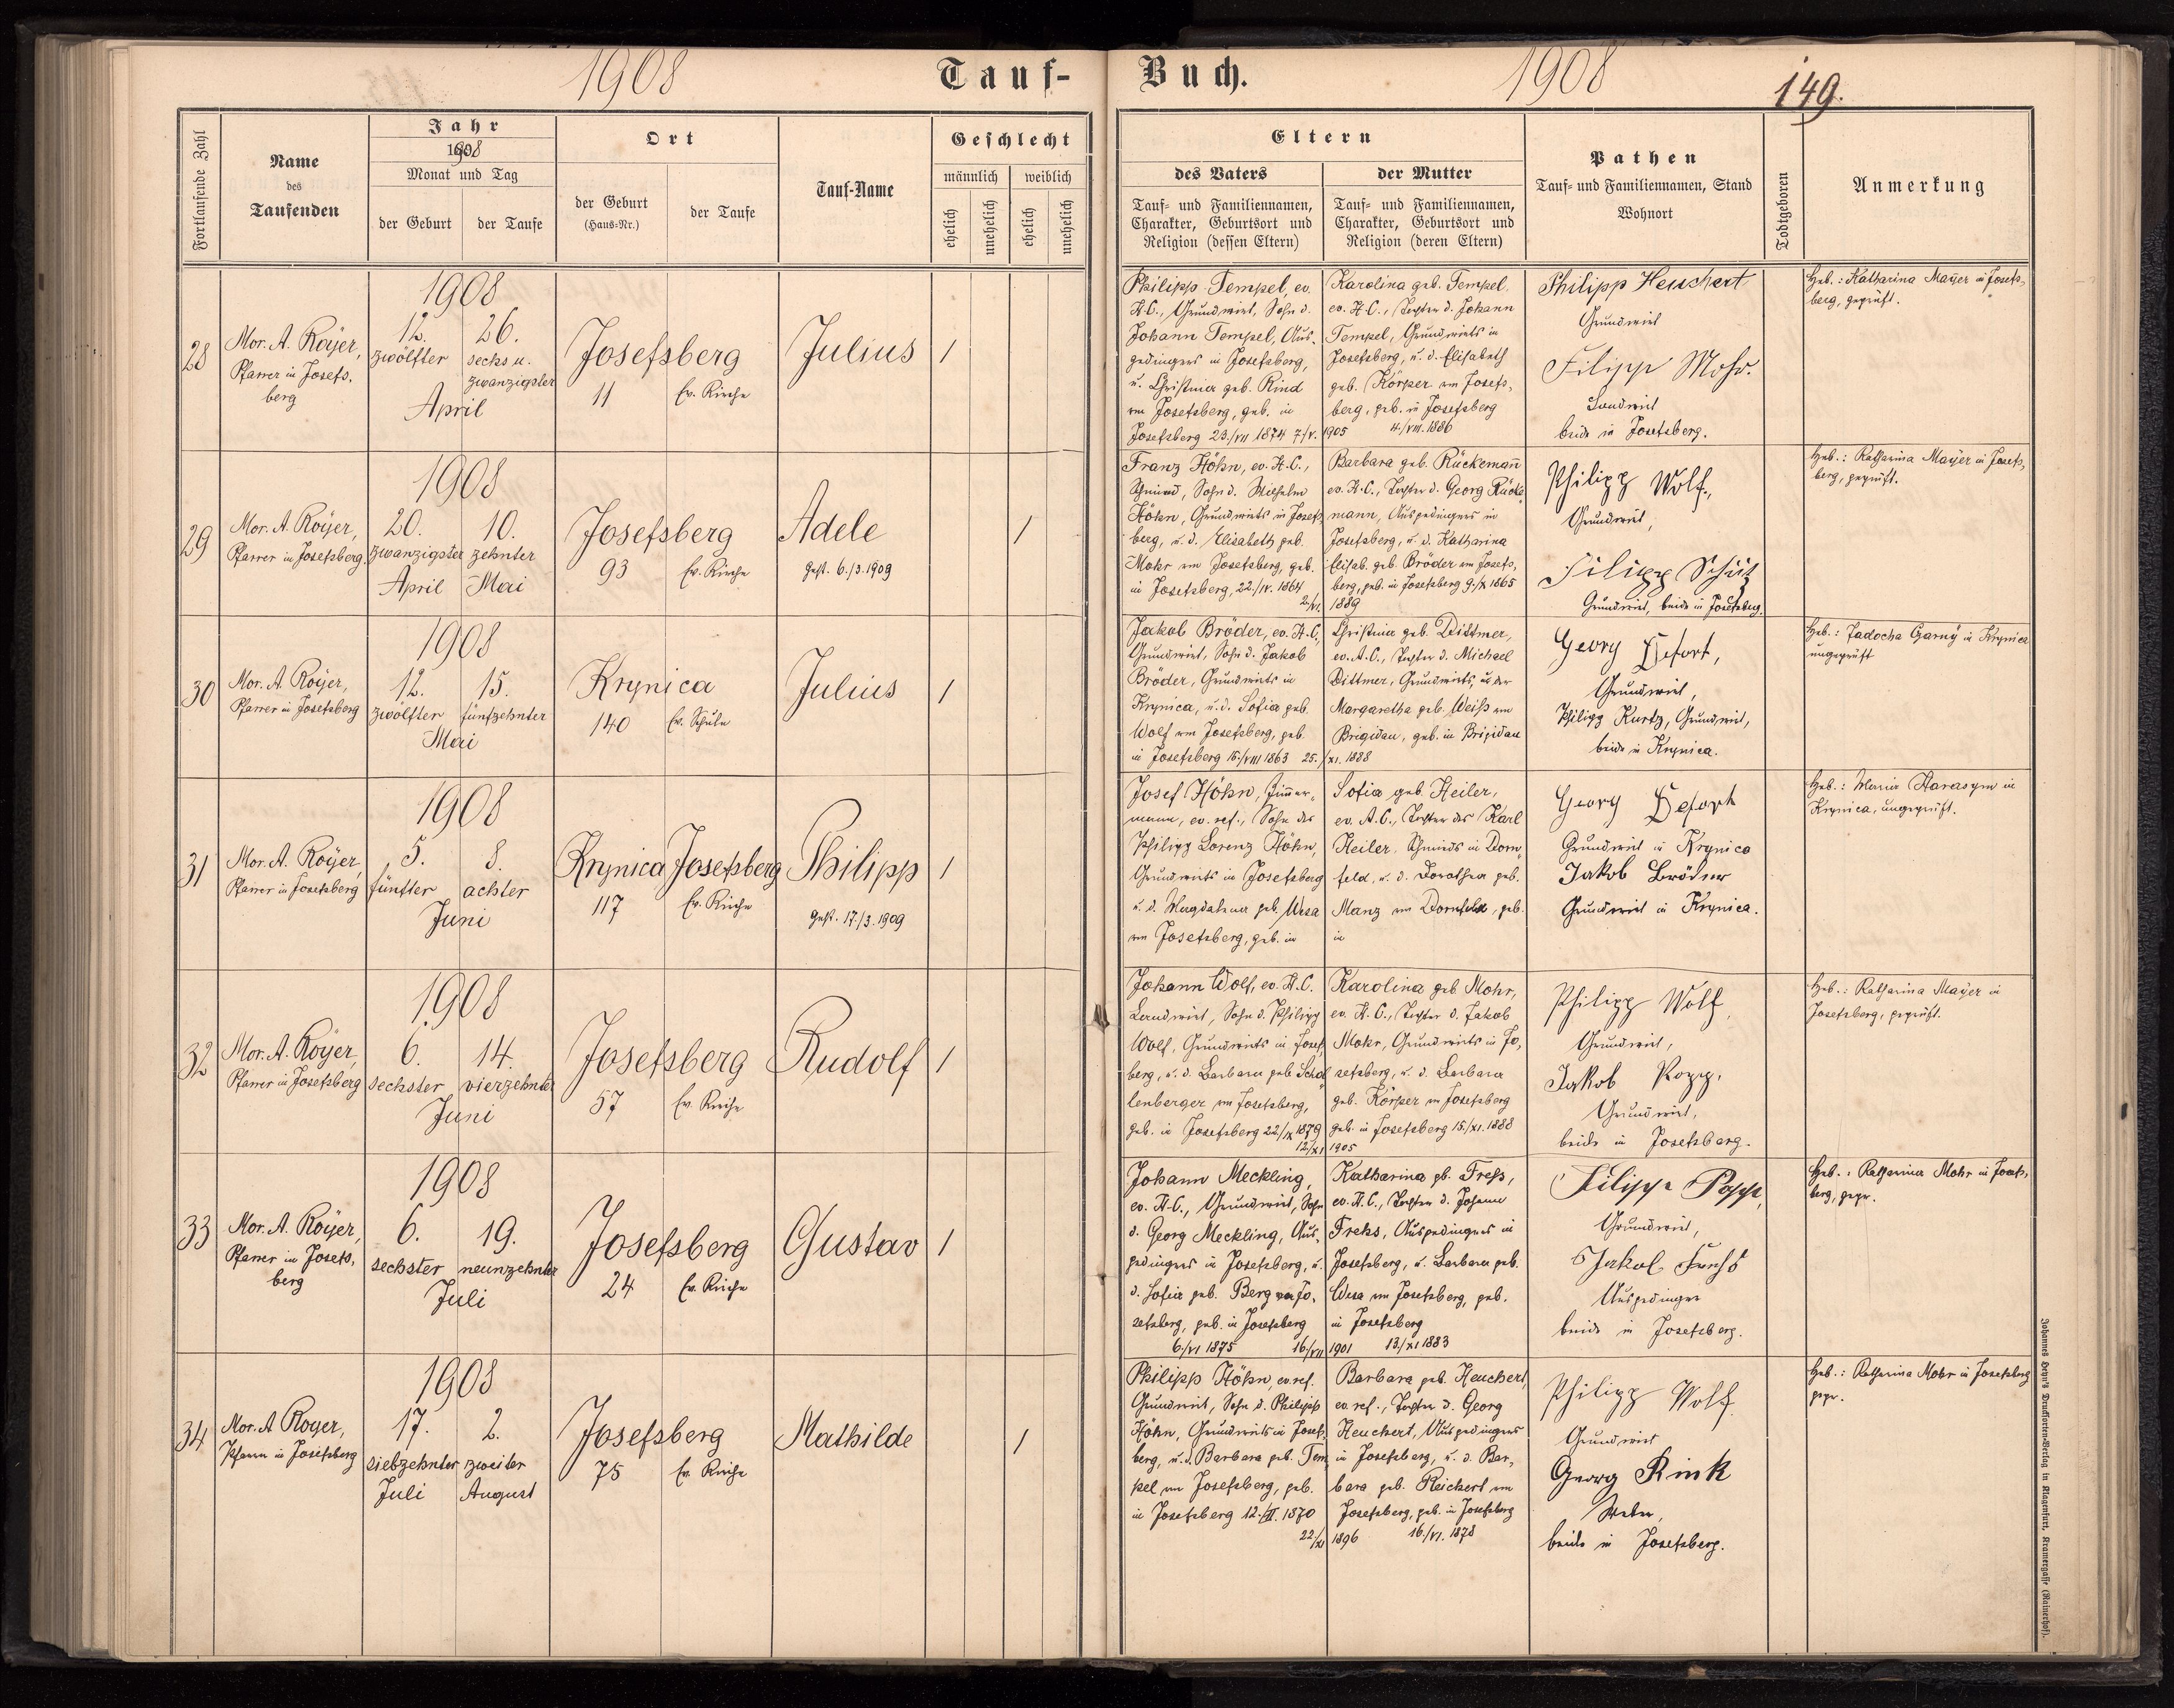 1908
Tauf-
Buch.
1908
149.
Fortlaufende Zahl
Name
des
Taufenden
Jahr
1908
Monat und Tag
der Geburt
der Taufe
Ort
der Geburt
(Haus-Nr.)
der Taufe
Tauf-Name
Geschlecht
männlich
weiblich
ehelich
unehelich
ehelich
unehelich
Eltern
des Vaters
Tauf- und Familiennamen,
Charakter, Geburtsort und
Religion (dessen Eltern)
der Mutter
Tauf- und Familiennamen,
Charakter, Geburtsort und
Religion (deren Eltern)
Pathen
Tauf- und Familiennamen, Stand
Wohnort
Todtgeboren
Anmerkung
28
Mor. A. Royer,
Pfarrer in Josefs-
berg
1908
12. 26.
zwölfter sechs u.
zwanzigster
April
Josefsberg
11 Ev. Kirche
Julius
1
Philipp Tempel, ev.
H.C., Grundwirt, Sohn d.
Johann Tempel, Aus-
gedingers in Josefsberg,
u. Christina geb. Rind
von Josefsberg, geb. in
Josefsberg 23./VII 1874 7./V.
Karolina geb. Tempel,
ev. H.C., Tochter d. Johann
Tempel, Grundwirts in
Josefsberg, u. d. Elisabeth
geb. Körper von Josefs-
berg, geb. in Josefsberg
1905 4./VIII. 1886
Philipp Heuchert
Grundwirt
Filipp Mohr.
Landwirt
beide in Josefsberg.
Heb.: Katharina Mayer in Josefs-
berg, geprüft.
29
Mor. A. Royer,
Pfarrer in Josefsberg.
1908
20. 10.
zwanzigster zehnter
April Mai
Josefsberg
93 Ev. Kirche
Adele
gest. 6./3. 1909
1
Franz Höhn, ev. H.C.,
Schmied, Sohn d. Wilhelm
Höhn, Grundwirts in Josefs-
berg, u. d. Elisabeth geb.
Mohr von Josefsberg, geb.
in Josefsberg, 22./IV. 1864
2./VI.
Barbara geb. Rückemann
ev. H.C., Tochter d. Georg Rücke
mann, Ausgedingers in
Josefsberg, u. d. Katharina
Elisab. geb. Bröder von Josefs-
berg, geb. in Josefsberg 9./X 1865
1889
Philipp Wolf,
Grundwirt,
Filipp Schütz
Grundwirt, beide in Josefsberg.
Heb.: Katharina Mayer in Josefs-
berg, geprüft.
30
Mor. A. Royer,
Pfarrer in Josefsberg
1908
12. 15.
zwölfter fünfzehnter
Mai
Krynica
140 Ev. Schule
Julius
1
Jakob Bröder, ev. H.C.,
Grundwirt, Sohn d. Jakob
Bröder, Grundwirts in
Krynica, u. d. Sofia geb.
Wolf von Josefsberg, geb.
in Josefsberg 15./VIII 1863 25./
Christina geb. Dittmer,
ev. A.C., Tochter d. Michael
Dittmer, Grundwirts, u. der
Margaretha geb. Weiß von
Brigidau, geb. in Brigidau
XI. 1888
Georg Hefort,
Grundwirt,
Philipp Kurtz, Grundwirt,
beide in Krynica.
Heb.: Jadocha Czarny in Krynica
ungeprüft
31
Mor. A. Royer
Pfarrer in Josefsberg
1908
5. 8.
fünfter achter
Juni
Krynica Josefsberg
117 Ev. Kirche
Philipp
gest. 17./3. 1909
1
Josef Höhn, Zimmer-
mann, ev. ref., Sohn des
Philipp Lorenz Höhn,
Grundwirts in Josefsberg
u. d. Magdalena geb. Wesa
von Josefsberg, geb. in
Sofia geb. Heiler,
ev. A.C., Tochter des Karl
Heiler, Schmieds in Dorn-
feld, u. d. Dorothea geb.
Manz von Dornfeld, geb.
in
Georg Hefort
Grundwirt in Krynica
Jakob Bröder
Grundwirt in Krynica.
Heb.: Maria Harasym in
Krynica, ungeprüft.
32
Mor. A. Royer,
Pfarrer in Josefsberg
1908
6. 14.
sechster vierzehnter
Juni
Josefsberg
57 Ev. Kirche
Rudolf
1
Johann Wolf, ev. H.C.
Landwirt, Sohn d. Philipp
Wolf, Grundwirts in Josefs-
berg, u. d. Barbara geb. Schol
lenberger von Josefsberg,
geb. in Josefsberg 22./IX 1879
12./XI
Karolina geb. Mohr,
ev. H.C., Tochter d. Jakob
Mohr, Grundwirts in Jo-
sefsberg, u. d. Barbara
geb. Körper von Josefsberg
geb. in Josefsberg 15./XI. 1888
1905
Philipp Wolf,
Grundwirt,
Jakob Popp,
Grundwirt,
beide in Josefsberg.
Heb.: Katharina Mayer in
Josefsberg, geprüft.
33
Mor. A. Royer,
Pfarrer in Josefs-
berg
1908
6. 19.
sechster neunzehnter
Juli
Josefsberg
24 Ev. Kirche
Gustav
1
Johann Meckling,
ev. H.C., Grundwirt, Sohn
d. Georg Meckling, Aus-
gedingers in Josefsberg, u.
d. Sofia geb. Berg von Jo-
sefsberg, geb. in Josefsberg
6./VI 1875 16./VII
Katharina gb. Freß,
ev. H.C., Tochter d. Johann
Frehs, Ausgedingers in
Josefsberg, u. Barbara geb.
Wesa von Josefsberg, geb.
in Josefsberg
1901 13./XI 1883
Filipp Popp,
Grundwirt,
Jakob Fuchs
Ausgedinger
beide in Josefsberg.
Heb.: Katharina Mohr in Josefs-
berg, gepr.
34
Mor. A. Royer,
Pfarrer in Josefsberg
1908
17. 2.
siebzehnter zweiter
Juli August
Josefsberg
75 Ev. Kirche
Mathilde
1
Philipp Höhn, ev. ref.
Grundwirt, Sohn d. Philipp
Höhn, Grundwirts in Josefs-
berg, u. d. Barbara geb. Tem
pel von Josefsberg, geb.
in Josefsberg 12./II. 1870
22./XI
Barbara geb. Heuchert,
ev. ref., Tochter d. Georg
Heuchert, Ausgedingers
in Josefsberg, u. d. Bar-
bara geb. Reichert von
Josefsberg, geb. in Josefsberg
1896 16./VI. 1878
Philipp Wolf
Grundwirt
Georg Rink
Weber,
beide in Josefsberg.
Heb.: Katharina Mohr in Josefsberg
gepr.
Johannes Heyn's Drucksorten-Verlag in Klagenfurt, Kramergasse (Rainerhof).